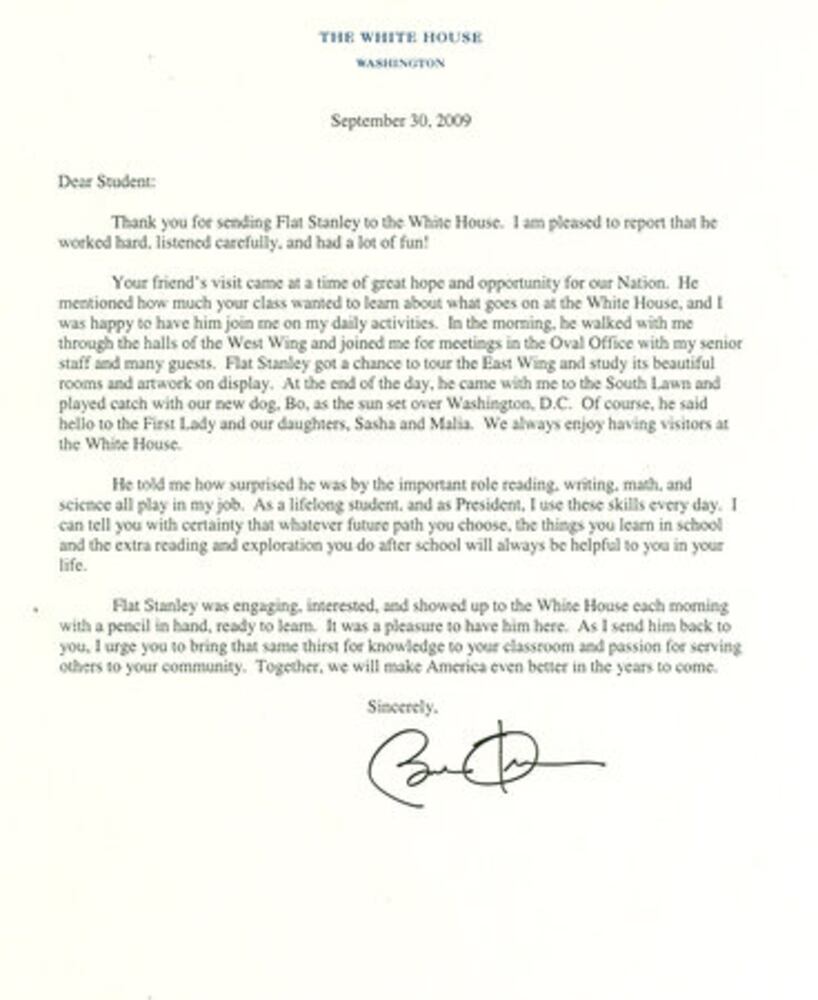 THE WHITE HOUSE
WASHINGTON
September 30, 2009
Dear Student:
Thank you for sending Flat Stanley to the White House. I am pleased to report that he
worked hard, listened carefully, and had a lot of fun!
Your friend's visit came at a time of great hope and opportunity for our Nation. He
mentioned how much your class wanted to learn about what goes on at the White House, and I
was happy to have him join me on my daily activities. In the morning, he walked with me
through the halls of the West Wing and joined me for meetings in the Oval Office with my senior
staff and many guests. Flat Stanley got a chance to tour the East Wing and study its beautiful
rooms and artwork on display. At the end of the day, he came with me to the South Lawn and
played catch with our new dog, Bo, as the sun set over Washington, D.C. Of course, he said
hello to the First Lady and our daughters, Sasha and Malia. We always enjoy having visitors at
the White House.
He told me how surprised he was by the important role reading, writing, math, and
science all play in my job. As a lifelong student, and as President, I use these skills every day. I
can tell you with certainty that whatever future path you choose, the things you learn in school
and the extra reading and exploration you do after school will always be helpful to you in your
life.
Flat Stanley was engaging, interested, and showed up to the White House each morning
with a pencil in hand, ready to learn. It was a pleasure to have him here. As I send him back to
you, I urge you to bring that same thirst for knowledge to your classroom and passion for serving
others to your community. Together, we will make America even better in the years to come.
Sincerely,